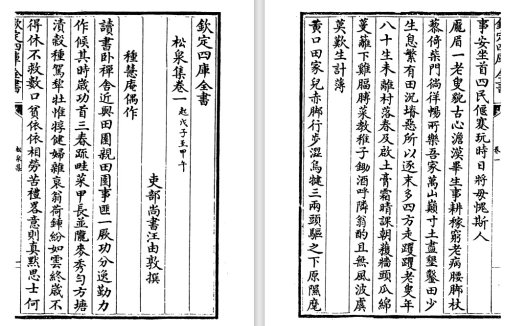 欽定四庫全書
松泉集卷一 起戊子至甲午
吏部尚書汪由敦撰
種慧庵偶作
讀書卧禪舍近與田園親田園事匪一厥功分逸勤力
作候其時歲功首三春疏畦菜甲長並隴麥秀勻方塘
漬穀種駕犂牡惟犉健婦雜衰翁荷鍤紛如雲終歲不
得休不救數口貧依依相勞苦種各意則真黙思士何
欽定四庫全書
松泉集
事安坐首四民偃蹇玩時日將毋愧斯人
龐眉一老叟貌古心澹漠畢生事耕稼窮老病腰脚杖
藜倚柴門徜徉暢所樂吾家萬山巔寸土盡墾鑿田少
生息繁有田況塉惡所以逐末多四方走躩躩老叟年
八十生未離村落春及啟土膏霜晴課朝穫牆頭瓜綿
蔓籬下雞腷膊菜教稚子鋤酒呼隣翁酌且無風波虞
莫歎生計薄
黃口田家兒赤脚行步澀烏犍三兩頭驅之下原隰麾
卷一